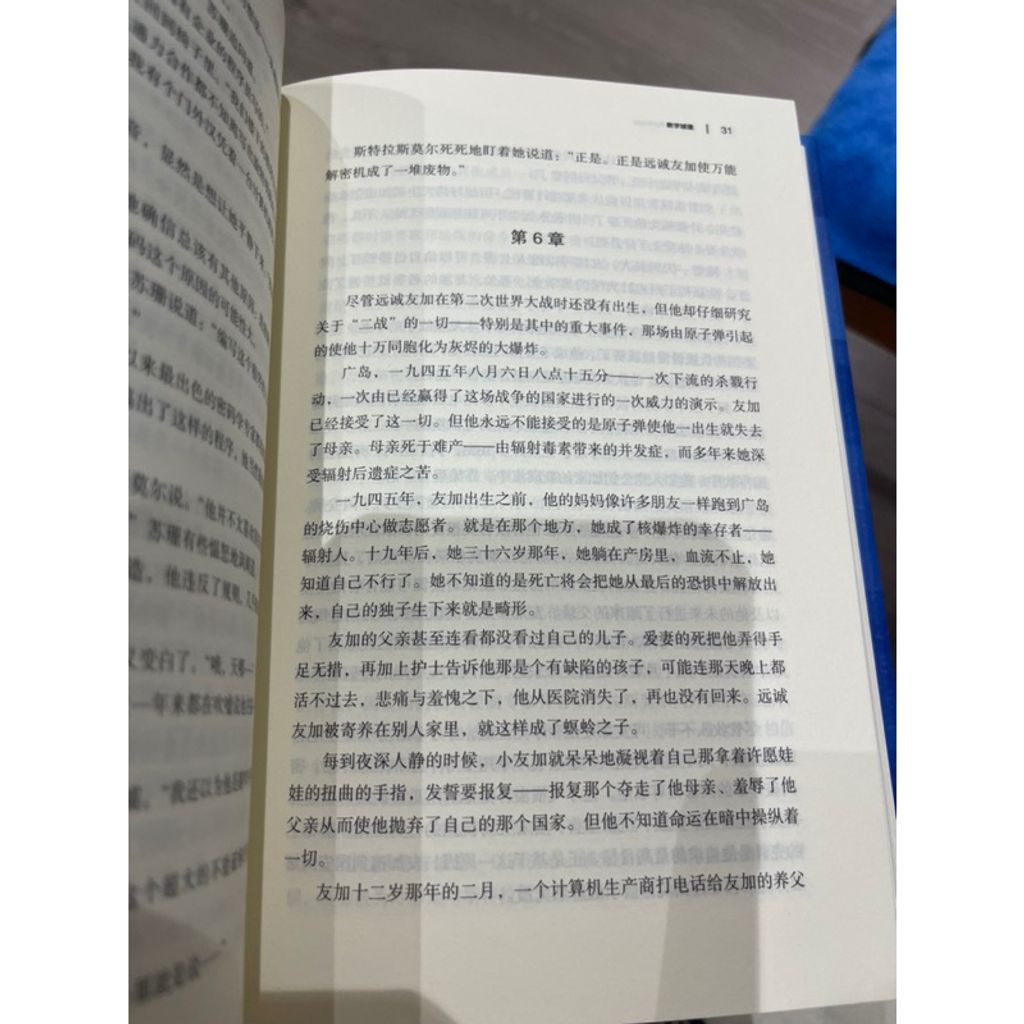 显然是想让她平静下来
他确信总该有其他原因
码这个原因的可能性大
苏珊说道：“编写这个
以来最出色的密码学专家
出了这样的程序
莫尔说。“他并不太喜欢
”苏珊有些恼怒地
他违反了规则
又变白了。“哦，天哪
一年来都在吹嘘说他
“我还以为他是
数字城堡 | 31
斯特拉斯莫尔死死地盯着她说道：“正是。正是远诚友加使万能
解密机成了一堆废物。”
第 6 章
尽管远诚友加在第二次世界大战时还没有出生，但他却仔细研究
关于“二战”的一切——特别是其中的重大事件，那场由原子弹引起
的使他十万同胞化为灰烬的大爆炸。
广岛，一九四五年八月六日八点十五分——一次下流的杀戮行
动，一次由已经赢得了这场战争的国家进行的一次威力的演示。友加
已经接受了这一切。但他永远不能接受的是原子弹使他一出生就失去
了母亲。母亲死于难产——由辐射毒素带来的并发症，而多年来她深
受辐射后遗症之苦。
一九四五年，友加出生之前，他的妈妈像许多朋友一样跑到广岛
的烧伤中心做志愿者。就是在那个地方，她成了核爆炸的幸存者——
辐射人。十九年后，她三十六岁那年，她躺在产房里，血流不止，她
知道自己不行了。她不知道的是死亡将会把她从最后的恐惧中解放出
来，自己的独子生下来就是畸形。
友加的父亲甚至连看都没看过自己的儿子。爱妻的死把他弄得手
足无措，再加上护士告诉他那是个有缺陷的孩子，可能连那天晚上都
活不过去，悲痛与羞愧之下，他从医院消失了，再也没有回来。远诚
友加被寄养在别人家里，就这样成了螟蛉之子。
每到夜深人静的时候，小友加就呆呆地凝视着自己那拿着许愿娃
娃的扭曲的手指，发誓要报复——报复那个夺走了他母亲、羞辱了他
父亲从而使他抛弃了自己的那个国家。但他不知道命运在暗中操纵着
一切。
友加十二岁那年的二月，一个计算机生产商打电话给友加的养父